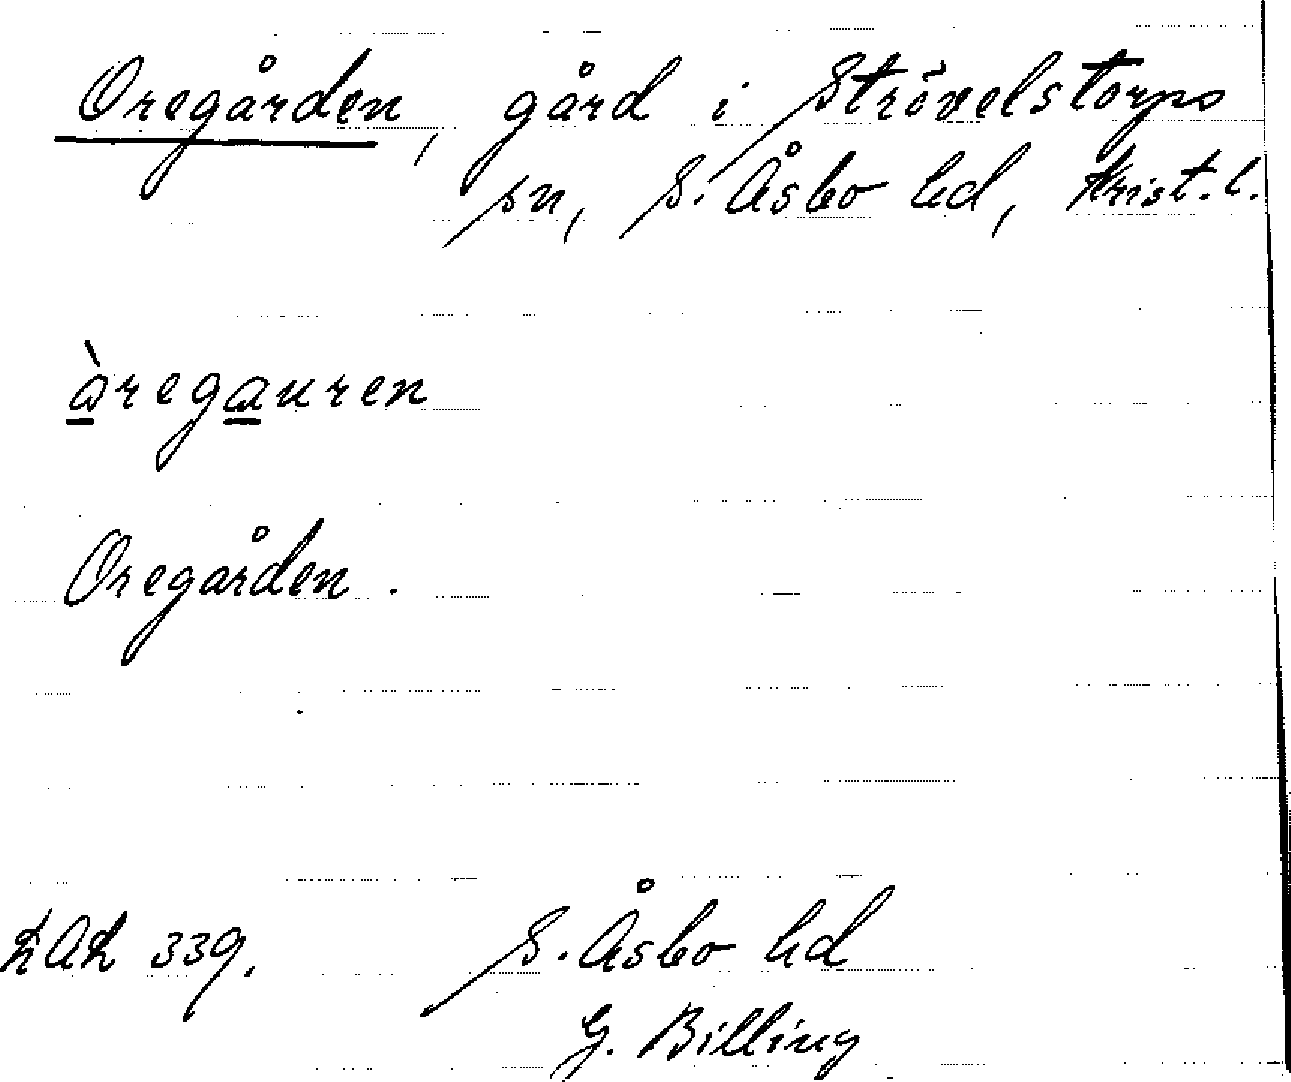 Oregården, gård i Strövelstorps
sn, S. Åsbo hd, Krist. l.
àregauren
Oregården.
LAL 339.
S. Åsbo hd
G. Billing